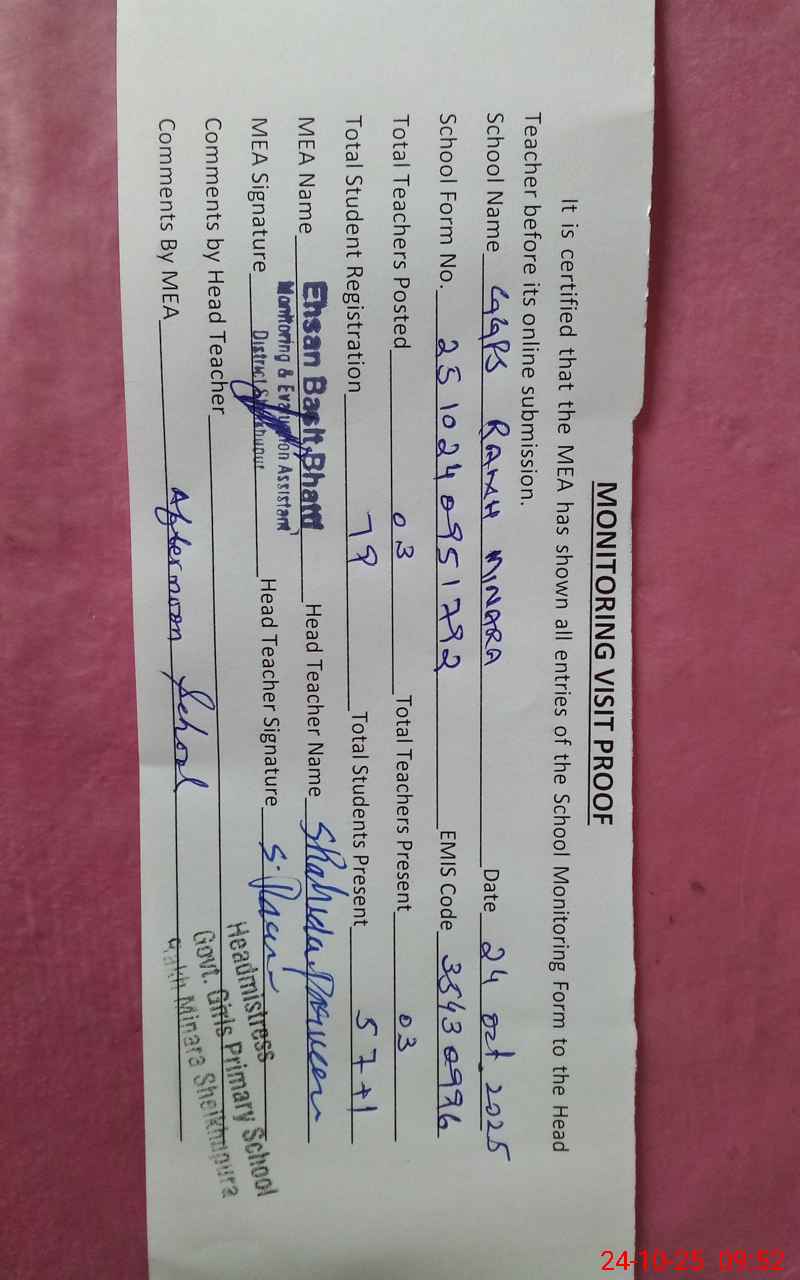 MONITORING VISIT PROOF
It is certified that the MEA has shown all entries of the School Monitoring Form to the Head
Teacher before its online submission.
School Name GGPS RAKH MINARA Date 24 Oct 2025
School Form No. 2510240951792 EMIS Code 35430996
Total Teachers Posted 03 Total Teachers Present 03
Total Student Registration 79 Total Students Present 57+1
MEA Name Ehsan Basit Bhatti Head Teacher Name Shahida Parveen
Monitoring & Evaluation Assistant
MEA Signature District Sheikhupur Head Teacher Signature
Headmistress
Comments by Head Teacher Govt. Girls Primary School
Comments By MEA Afternoon School Rakh Minara Sheikhupura
24-10-25 09:52